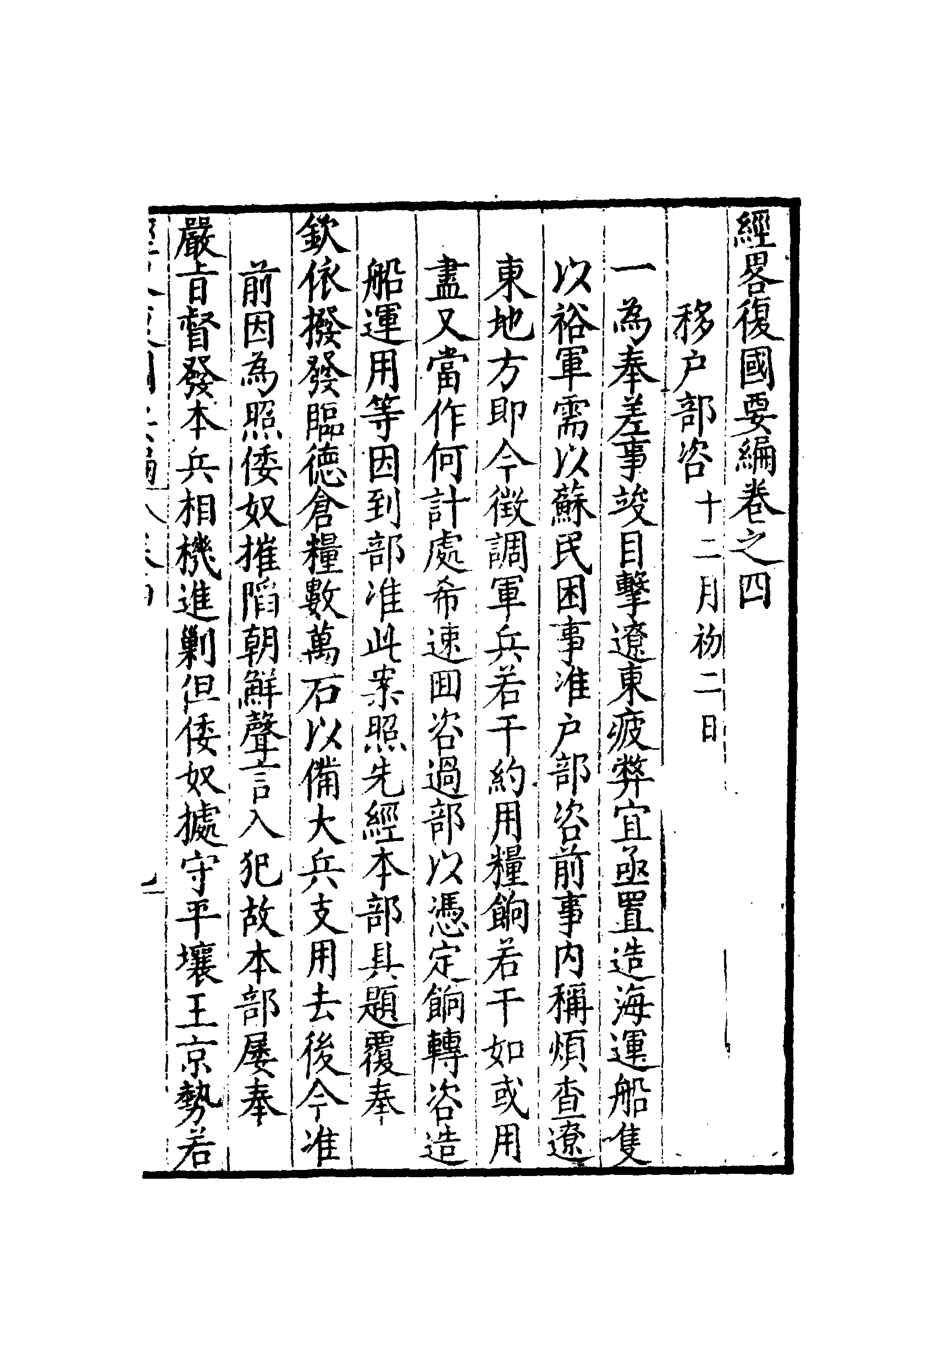 經畧復國要編卷之四
移户部咨十二月初二日
一為奉差事竣目擊遼東疲弊宜亟置造海運船隻
以裕軍需以蘇民困事准户部咨前事内稱煩查遼
東地方即今徵調軍兵若干約用糧餉若干如或用
盡又當作何計處希速囬咨過部以憑定餉轉咨造
船運用等因到部准此案照先經本部具題覆奉
欽依撥發臨德倉糧數萬石以備大兵支用去後今准
前因為照倭奴摧䧟朝鮮聲言入犯故本部屡奉
嚴旨督發本兵相機進剿但倭奴據守平壤王京勢若